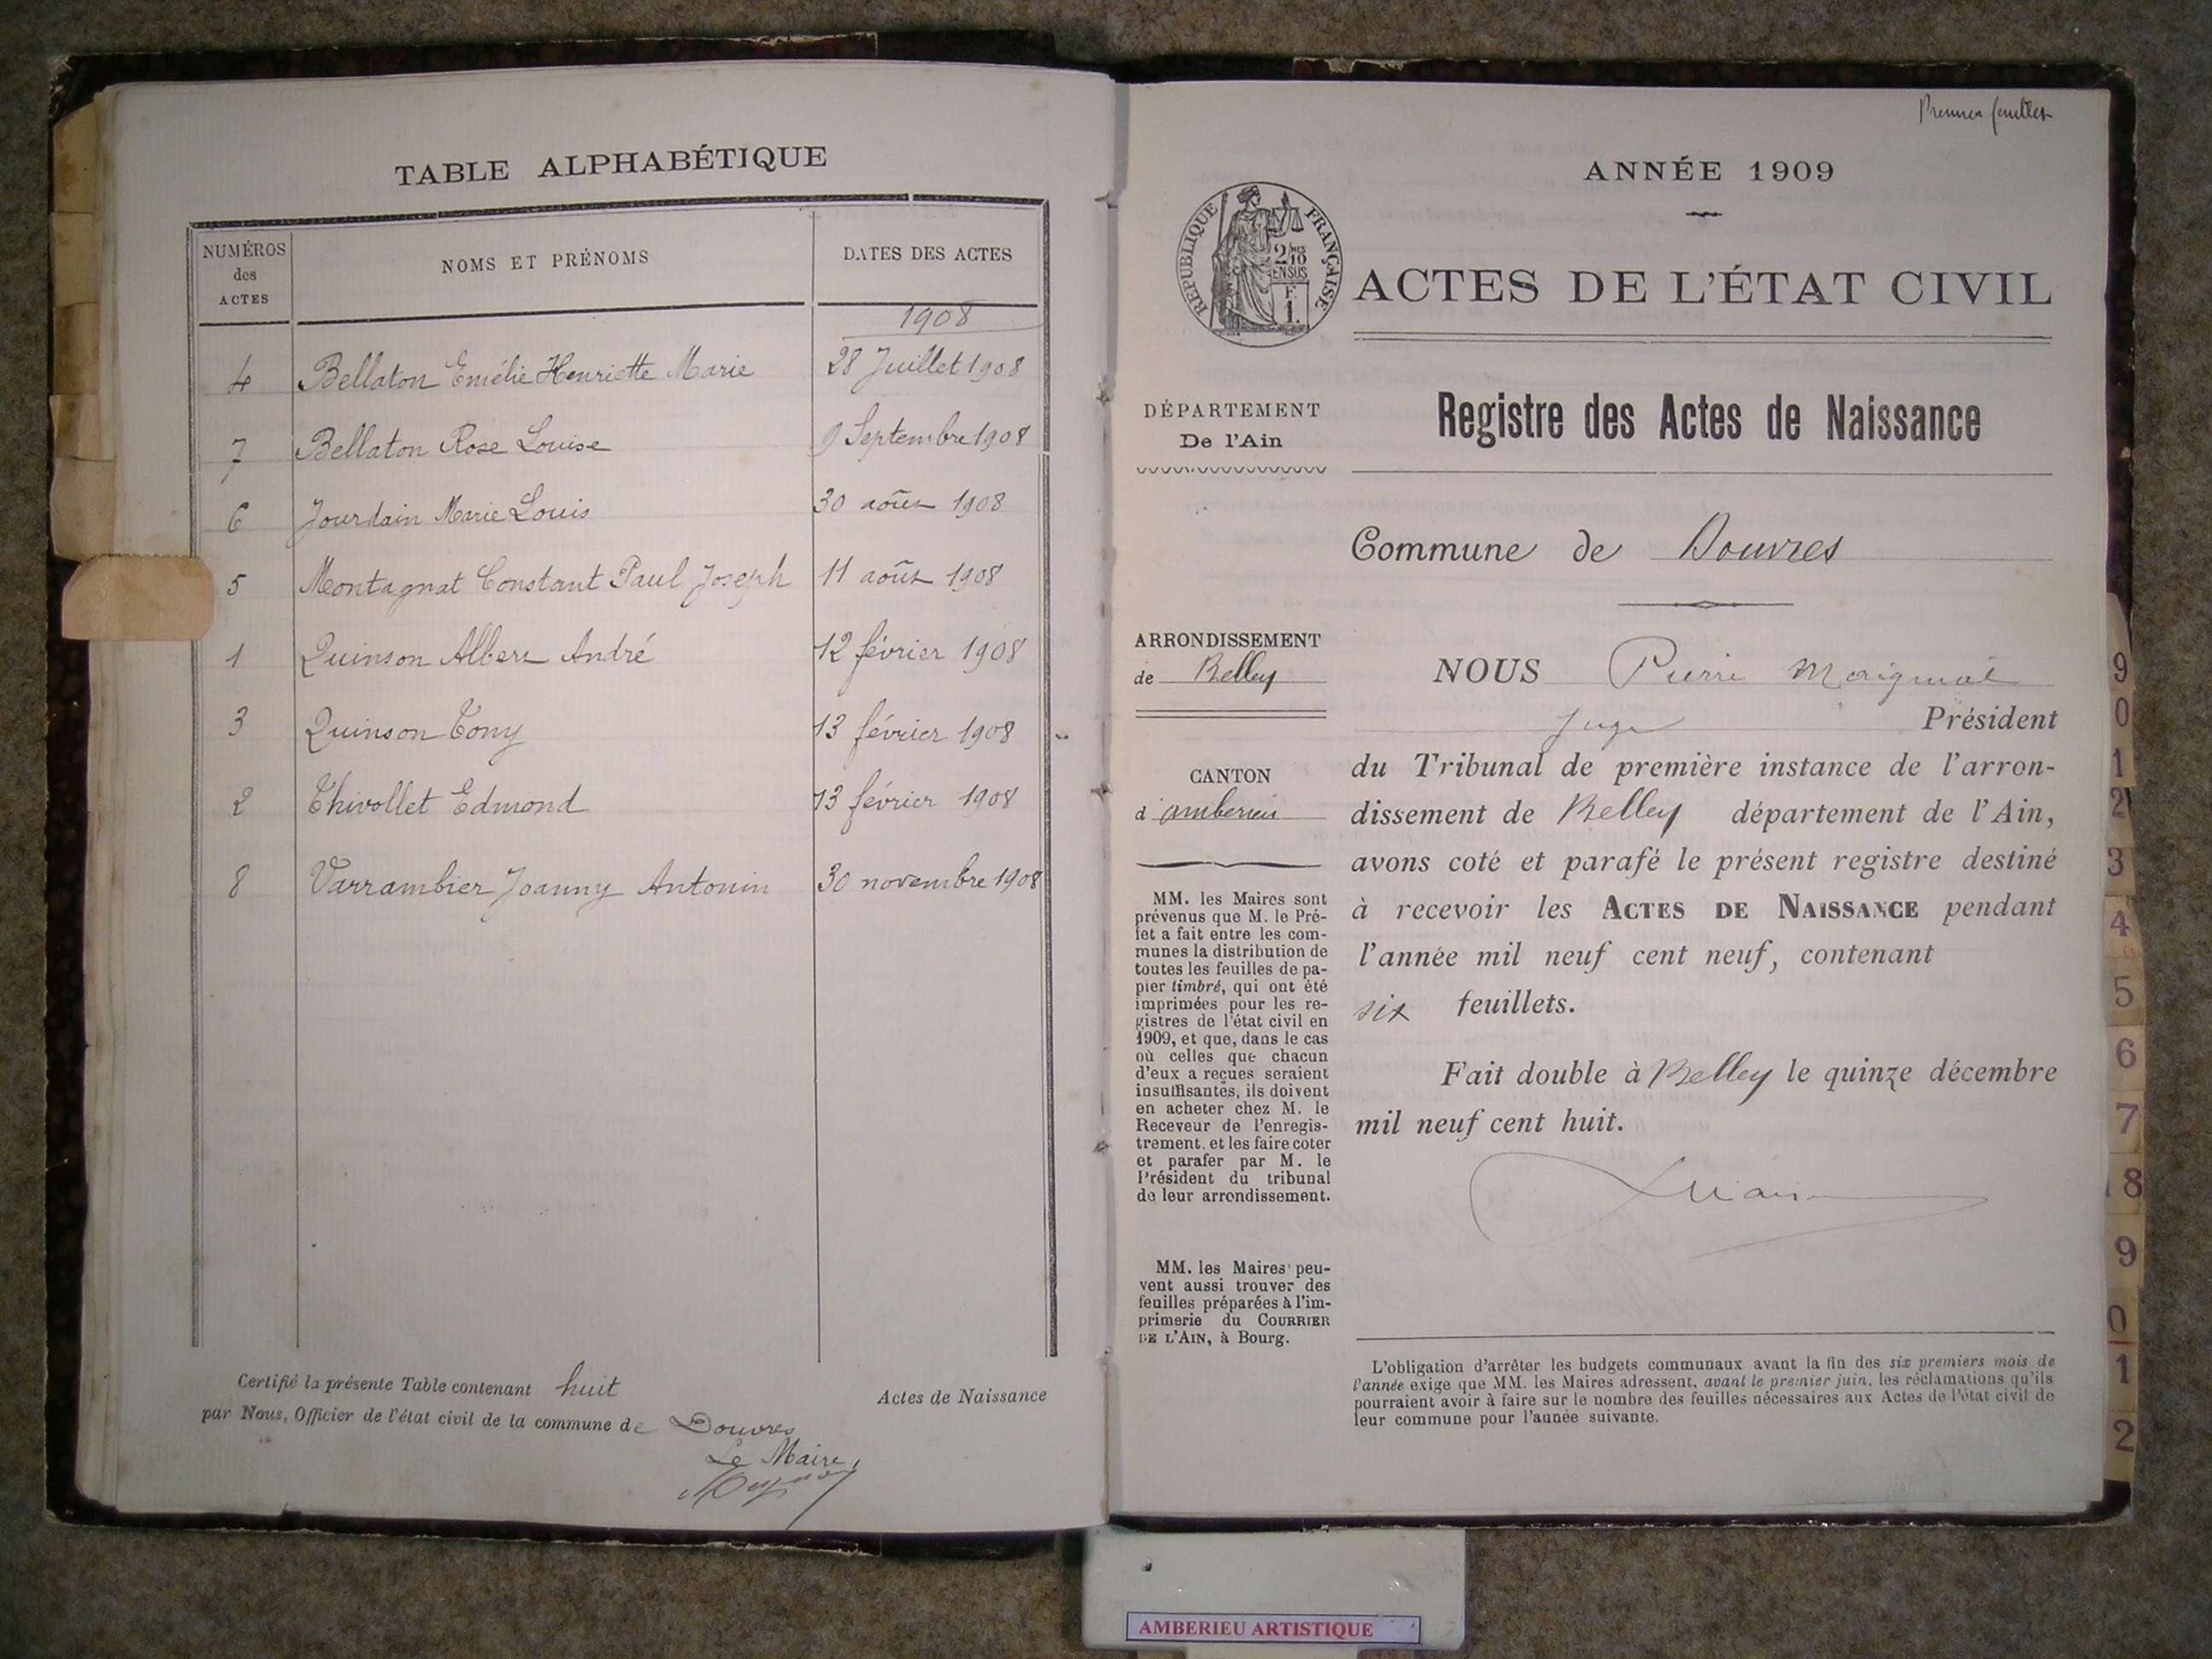 TABLE ALPHABÉTIQUE
NUMÉROS
des
ACTES
NOMS ET PRÉNOMS
DATES DES ACTES
1908
4 Bellaton Emélie Henriette Marie 28 Juillet 1908
7 Bellaton Rose Louise 9 Septembre 1908
6 Jourdain Marie Louis 30 août 1908
5 Montagnat Constant Paul Joseph 11 août 1908
1 Quinson Albert André 12 février 1908
3 Quinson Tony 13 février 1908
2 Thivollet Edmond 13 février 1908
8 Varrambier Joanny Antonin 30 novembre 1908
Certifié la présente Table contenant huit Actes de Naissance
par Nous, Officier de l'état civil de la commune de Douvres
Le Maire,
Premier feuillet
ANNÉE 1909
RÉPUBLIQUE FRANÇAISE
2/10
EN SUS
F.
1.
ACTES DE L'ÉTAT CIVIL
DÉPARTEMENT
De l'Ain
Registre des Actes de Naissance
Commune de Douvres
ARRONDISSEMENT
de Belley
CANTON
d'amberieu
MM. les Maires sont
prévenus que M. le Pré-
fet a fait entre les com-
munes la distribution de
toutes les feuilles de pa-
pier timbré, qui ont été
imprimées pour les re-
gistres de l'état civil en
1909, et que, dans le cas
où celles que chacun
d'eux a reçues seraient
insuffisantes, ils doivent
en acheter chez M. le
Receveur de l'enregis-
trement, et les faire coter
et parafer par M. le
Président du tribunal
de leur arrondissement.
MM. les Maires peu-
vent aussi trouver des
feuilles préparées à l'im-
primerie du COURRIER
DE L'AIN, à Bourg.
NOUS Pierre
Juge Président
du Tribunal de première instance de l'arron-
dissement de Belley département de l'Ain,
avons coté et parafé le présent registre destiné
à recevoir les ACTES DE NAISSANCE pendant
l'année mil neuf cent neuf, contenant
six feuillets.
Fait double à Belley le quinze décembre
mil neuf cent huit.
L'obligation d'arrêter les budgets communaux avant la fin des six premiers mois de
l'année exige que MM. les Maires adressent, avant le premier juin, les réclamations qu'ils
pourraient avoir à faire sur le nombre des feuilles nécessaires aux Actes de l'état civil de
leur commune pour l'année suivante.
9
0
1
2
3
4
5
6
7
8
9
0
1
2
AMBERIEU ARTISTIQUE